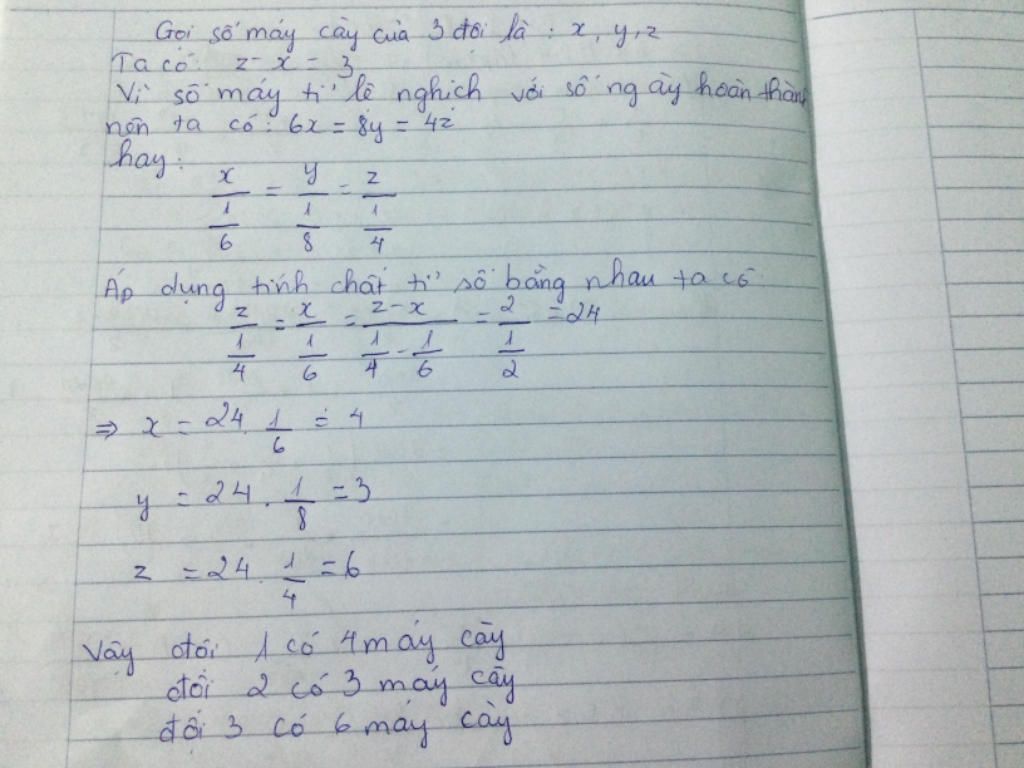 Gọi số máy cày của 3 đội là : x, y, z
Ta có: z - x = 3
Vì số máy tỉ lệ nghịch với số ngày hoàn thành
nên ta có: 6x = 8y = 4z
hay:
x/(1/6) = y/(1/8) = z/(1/4)
Áp dụng tính chất tỉ số bằng nhau ta có
z/(1/4) = x/(1/6) = (z-x)/(1/4 - 1/6) = 2/(1/2) = 24
⇒ x = 24 . 1/6 = 4
y = 24 . 1/8 = 3
z = 24 . 1/4 = 6
Vậy đội 1 có 4 máy cày
đội 2 có 3 máy cày
đội 3 có 6 máy cày